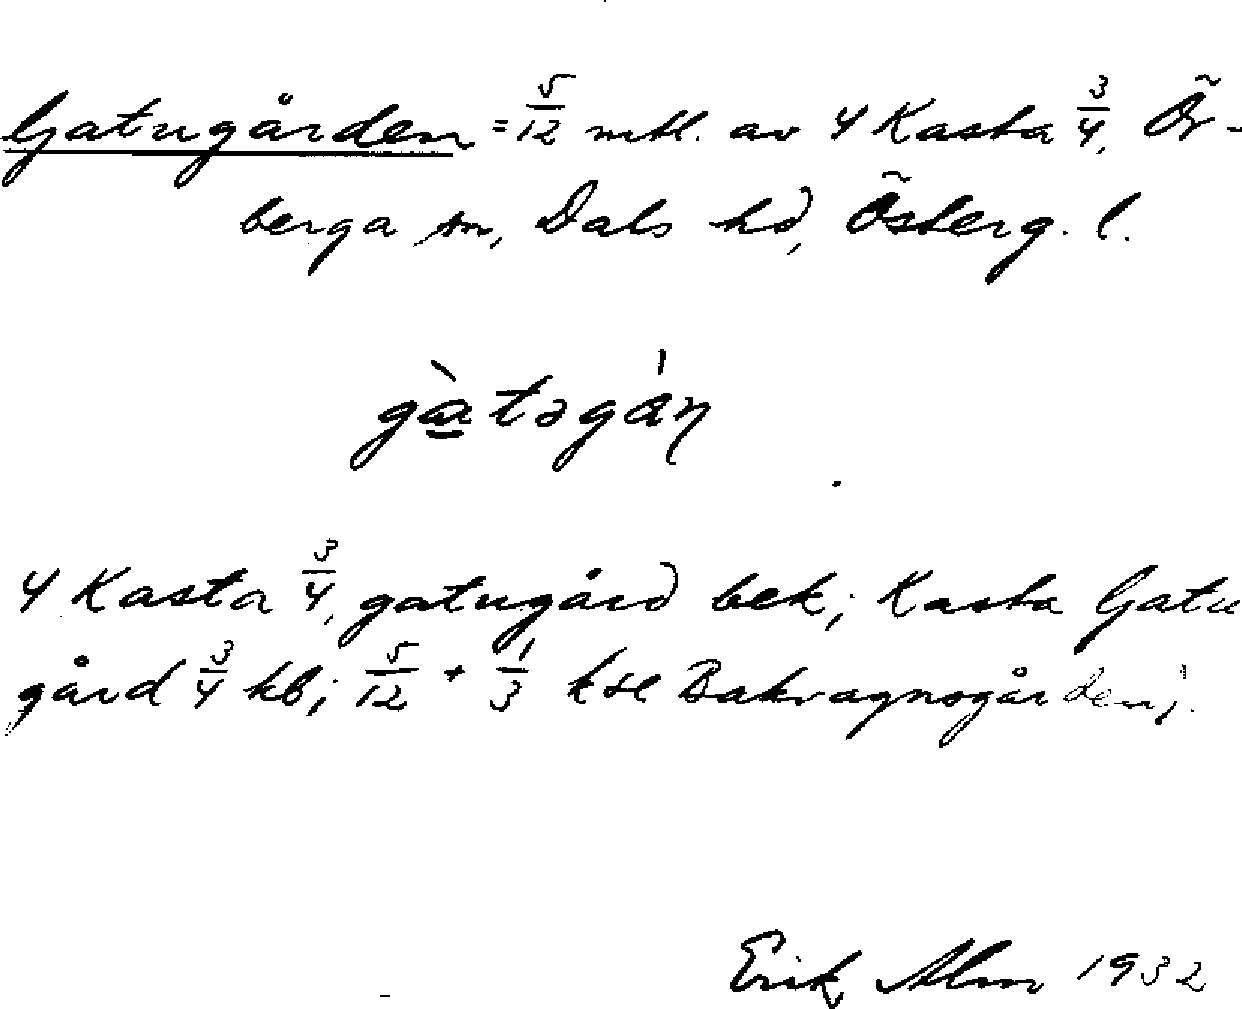 Gatugården = 5/12 mtl. av 4 Kasta 3/4, Ör-
berga sn, Dals hd, Österg. l.
gà̱təgán
4 Kasta 3/4, gatugård bek; Kasta Gatu
gård 3/4 kb; 5/12 + 1/3 kse Bakvagnsgården;
Erik Alm 1932